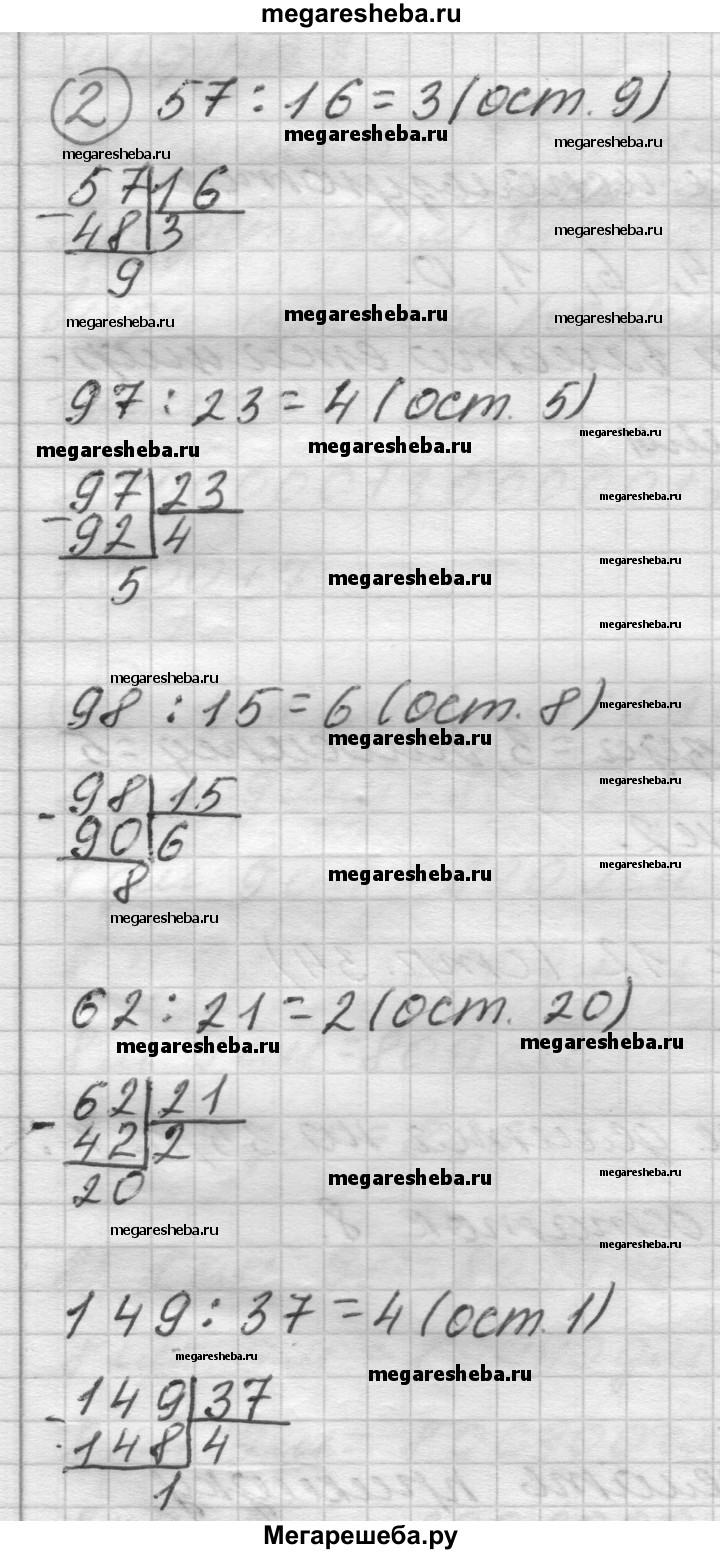 megaresheba.ru
2 57 : 16 = 3 (ост. 9)
megaresheba.ru megaresheba.ru
megaresheba.ru
- 57 | 16
48 | 3 megaresheba.ru
9
megaresheba.ru megaresheba.ru megaresheba.ru
97 : 23 = 4 (ост. 5)
megaresheba.ru megaresheba.ru megaresheba.ru
- 97 | 23 megaresheba.ru
92 | 4
megaresheba.ru
5 megaresheba.ru
megaresheba.ru
megaresheba.ru
98 : 15 = 6 (ост. 8) megaresheba.ru
megaresheba.ru
- 98 | 15 megaresheba.ru
90 | 6
megaresheba.ru
8 megaresheba.ru
megaresheba.ru
62 : 21 = 2 (ост. 20)
megaresheba.ru megaresheba.ru
- 62 | 21
42 | 2
20 megaresheba.ru megaresheba.ru
megaresheba.ru
megaresheba.ru
149 : 37 = 4 (ост. 1)
megaresheba.ru
megaresheba.ru
- 149 | 37
148 | 4
1
Мегарешеба.ру